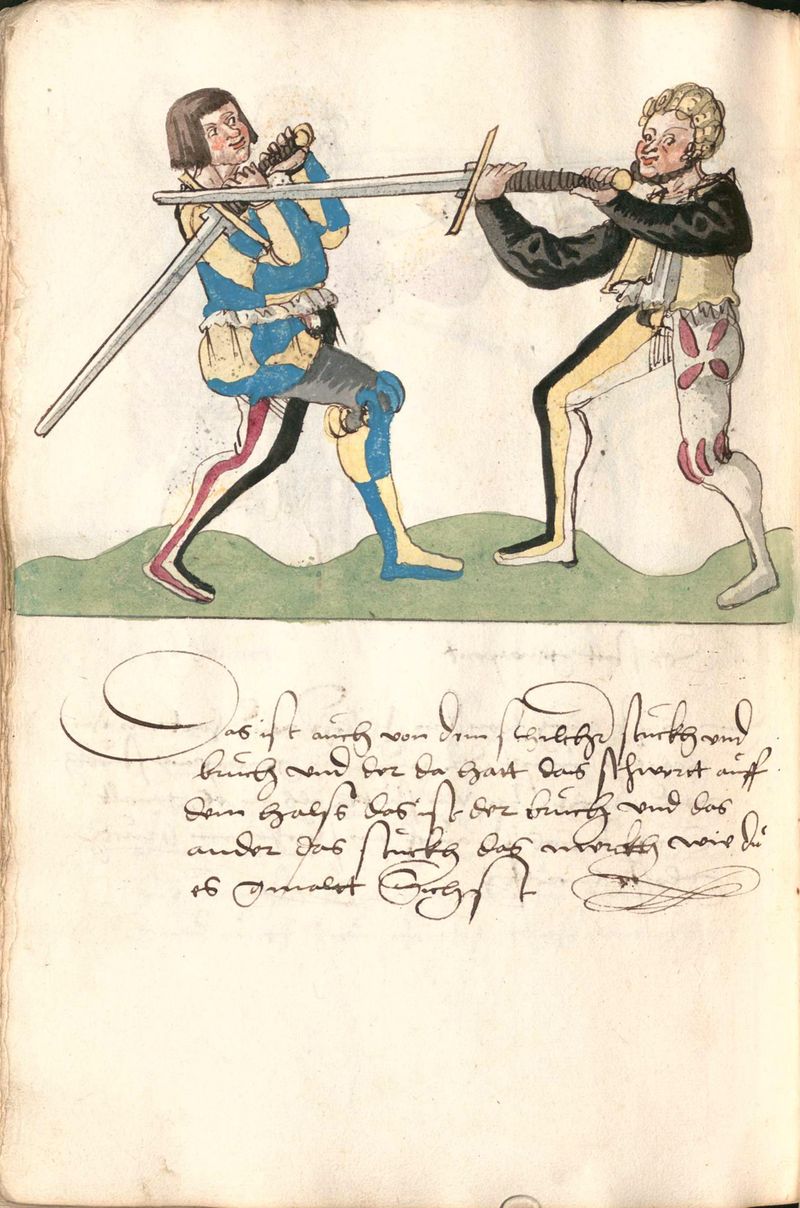 Das ist auch von dem schilcher stuckh und
bruch und der da hatt das schwertt auff
dem halsß das ist der bruch und das
ander das stuckh das merckh wie du
es gmaltt Sichst